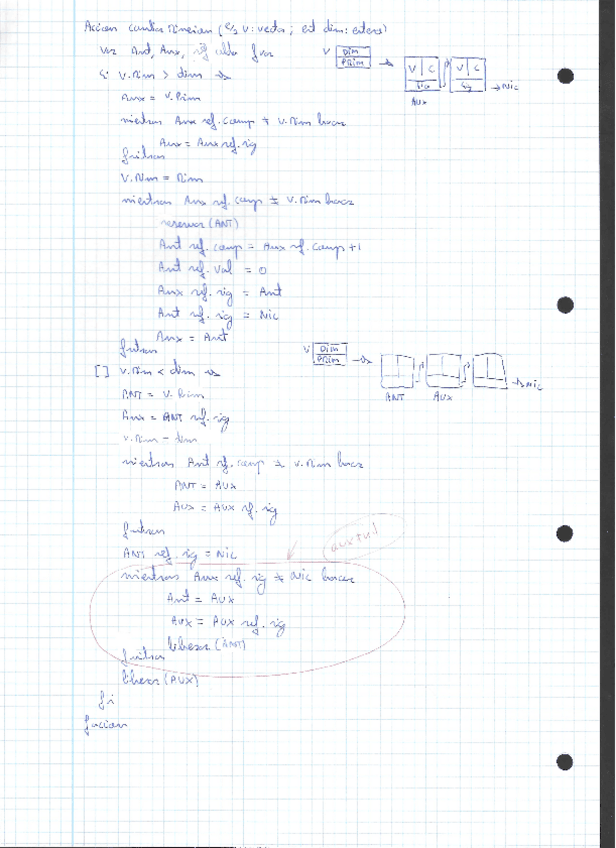 Accion cambia Dimension (e/s V: vector; ent dim: entero)
Var Ant, Aux, ref a fvar
V Dim
Prim
Si V.Dim > dim →
V C V C
Sig Sig → Nic
Aux
Aux = V.Prim
mientras Aux ref.camp ≠ V.Dim hacer
Aux = Aux ref.sig
fmitras
V.Dim = Dim
mientras Aux ref.camp ≠ V.Dim hacer
reservar (ANT)
Ant ref.camp = Aux ref.camp +1
Ant ref.val = 0
Aux ref.sig = Ant
Ant ref.sig = Nic
Aux = Ant
fmitras
V Dim
Prim → Nic
ANT AUX
[] V.Dim < dim →
ANT = V.Prim
Aux = ANT ref.sig
V.Dim = dim
mientras Ant ref.camp ≠ V.Dim hacer
ANT = AUX
AUX = AUX ref.sig
fmitras
ANT ref.sig = Nic
mientras Aux ref.sig ≠ Nic hacer
Ant = AUX
AUX = AUX ref.sig
liberar (ANT)
fmitras
liberar (AUX)
fsi
faccion